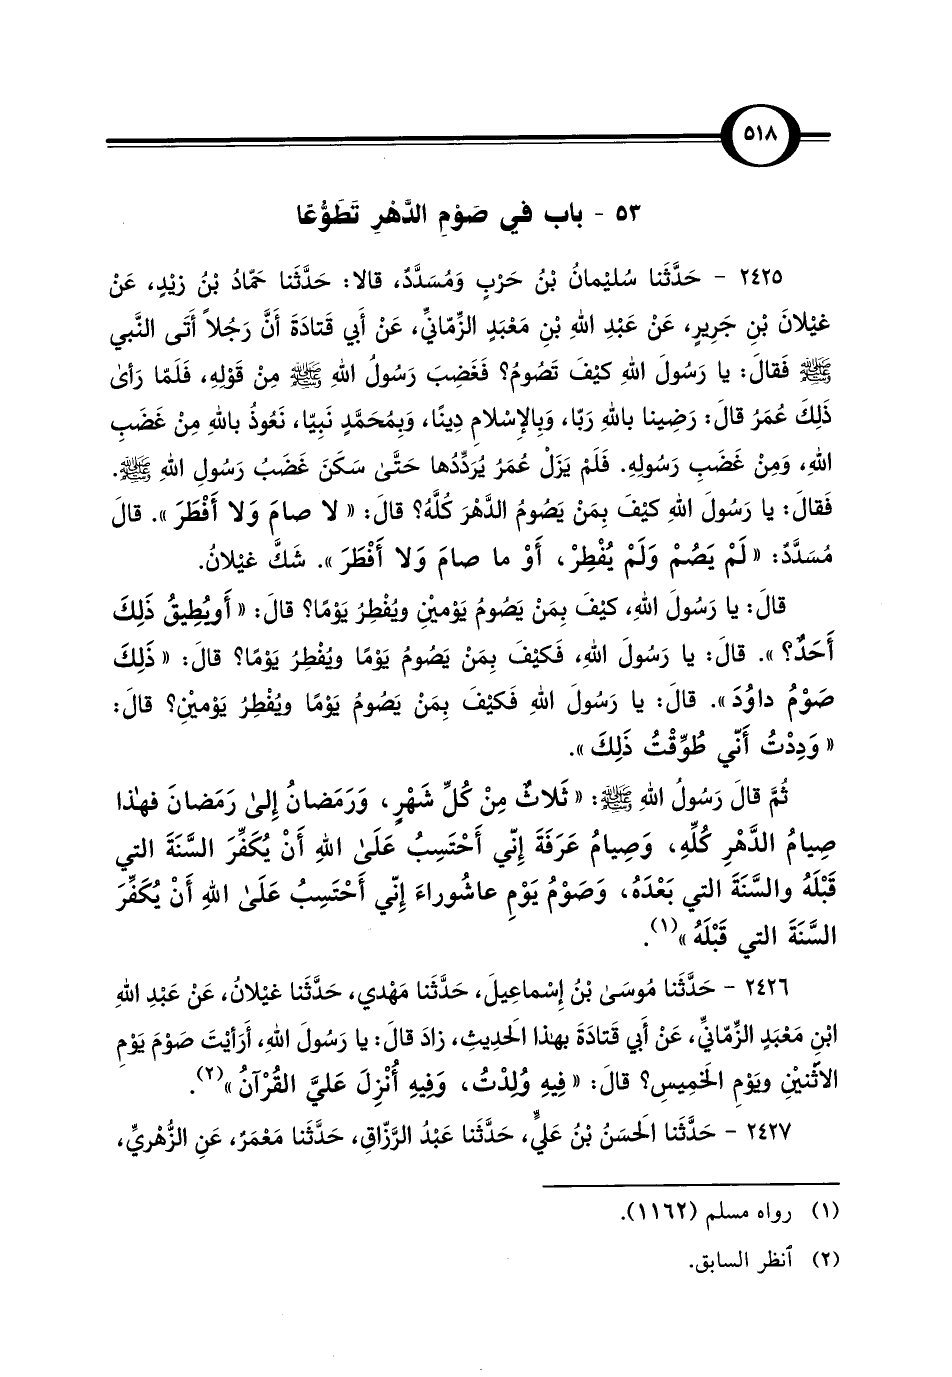 ٥١٨
٥٣ - باب في صَوْمِ الدَّهْرِ تَطَوُّعًا
٢٤٢٥ - حَدَّثَنا سُليْمانُ بْنُ حَرْبٍ وَمُسَدَّدٌ، قالا: حَدَّثَنا حَمّادُ بْنُ زيْدٍ، عَنْ
غيْلانَ بْنِ جَرِيرٍ، عَنْ عَبْدِ اللهِ بْنِ مَعْبَدٍ الزِّمّانيِّ، عَنْ أَبي قَتادَةَ أَنَّ رَجُلاً أَتَى النَّبي
ﷺ فَقالَ: يا رَسُولَ اللهِ كيْفَ تَصُومُ؟ فَغَضِبَ رَسُولُ اللهِ ﷺ مِنْ قَوْلِهِ، فَلَمّا رَأىٰ
ذَلِكَ عُمَرُ قالَ: رَضِينا باللهِ رَبّا، وَبِالإسْلامِ دِينًا، وَبِمُحَمَّدٍ نَبِيّا، نَعُوذُ باللهِ مِنْ غَضَبِ
اللهِ، وَمِنْ غَضَبِ رَسُولِهِ. فَلَمْ يَزَلْ عُمَرُ يُرَدِّدُها حَتَّىٰ سَكَنَ غَضَبُ رَسُولِ اللهِ ﷺ.
فَقالَ: يا رَسُولَ اللهِ كيْفَ بِمَنْ يَصُومُ الدَّهْرَ كُلَّهُ؟ قالَ: « لا صامَ وَلا أَفْطَرَ ». قالَ
مُسَدَّدٌ: « لَمْ يَصُمْ وَلَمْ يُفْطِرْ، أَوْ ما صامَ وَلا أَفْطَرَ ». شَكَّ غيْلانُ.
قالَ: يا رَسُولَ اللهِ، كيْفَ بِمَنْ يَصُومُ يَوْميْنِ ويُفْطِرُ يَوْمًا؟ قالَ: « أَويُطِيقُ ذَلِكَ
أَحَدٌ؟ ». قالَ: يا رَسُولَ اللهِ، فَكيْفَ بِمَنْ يَصُومُ يَوْمًا ويُفْطِرُ يَوْمًا؟ قالَ: « ذَلِكَ
صَوْمُ داوُدَ ». قالَ: يا رَسُولَ اللهِ فَكيْفَ بِمَنْ يَصُومُ يَوْمًا ويُفْطِرُ يَوْميْنِ؟ قالَ:
« وَدِدْتُ أَنّي طُوِّقْتُ ذَلِكَ ».
ثُمَّ قالَ رَسُولُ اللهِ ﷺ: « ثَلاثٌ مِنْ كُلِّ شَهْرٍ، وَرَمَضانُ إِلىٰ رَمَضانَ فهٰذا
صِيامُ الدَّهْرِ كُلِّهِ، وَصِيامُ عَرَفَةَ إِنّي أَحْتَسِبُ عَلَىٰ اللهِ أَنْ يُكَفِّرَ السَّنَةَ التي
قَبْلَهُ والسَّنَةَ التي بَعْدَهُ، وَصَوْمُ يَوْمِ عاشُوراءَ إِنّي أَحْتَسِبُ عَلَىٰ اللهِ أَنْ يُكَفِّرَ
السَّنَةَ التي قَبْلَهُ »(١).
٢٤٢٦ - حَدَّثَنا مُوسَىٰ بْنُ إِسْماعِيلَ، حَدَّثَنا مَهْدي، حَدَّثَنا غيْلانُ، عَنْ عَبْدِ اللهِ
ابْنِ مَعْبَدٍ الزِّمّانيِّ، عَنْ أَبي قَتادَةَ بهٰذا الحَدِيثِ، زادَ قالَ: يا رَسُولَ اللهِ، أَرَأيْتَ صَوْمَ يَوْمِ
الاثْنيْنِ ويَوْمِ الخَمِيسِ؟ قالَ: « فِيهِ وُلِدْتُ، وَفِيهِ أُنْزِلَ عَليَّ القُرْآنُ »(٢).
٢٤٢٧ - حَدَّثَنا الحَسَنُ بْنُ عَليٍّ، حَدَّثَنا عَبْدُ الرَّزّاقِ، حَدَّثَنا مَعْمَرٌ، عَنِ الزُّهْريِّ،
(١) رواه مسلم (١١٦٢).
(٢) ٱنظر السابق.